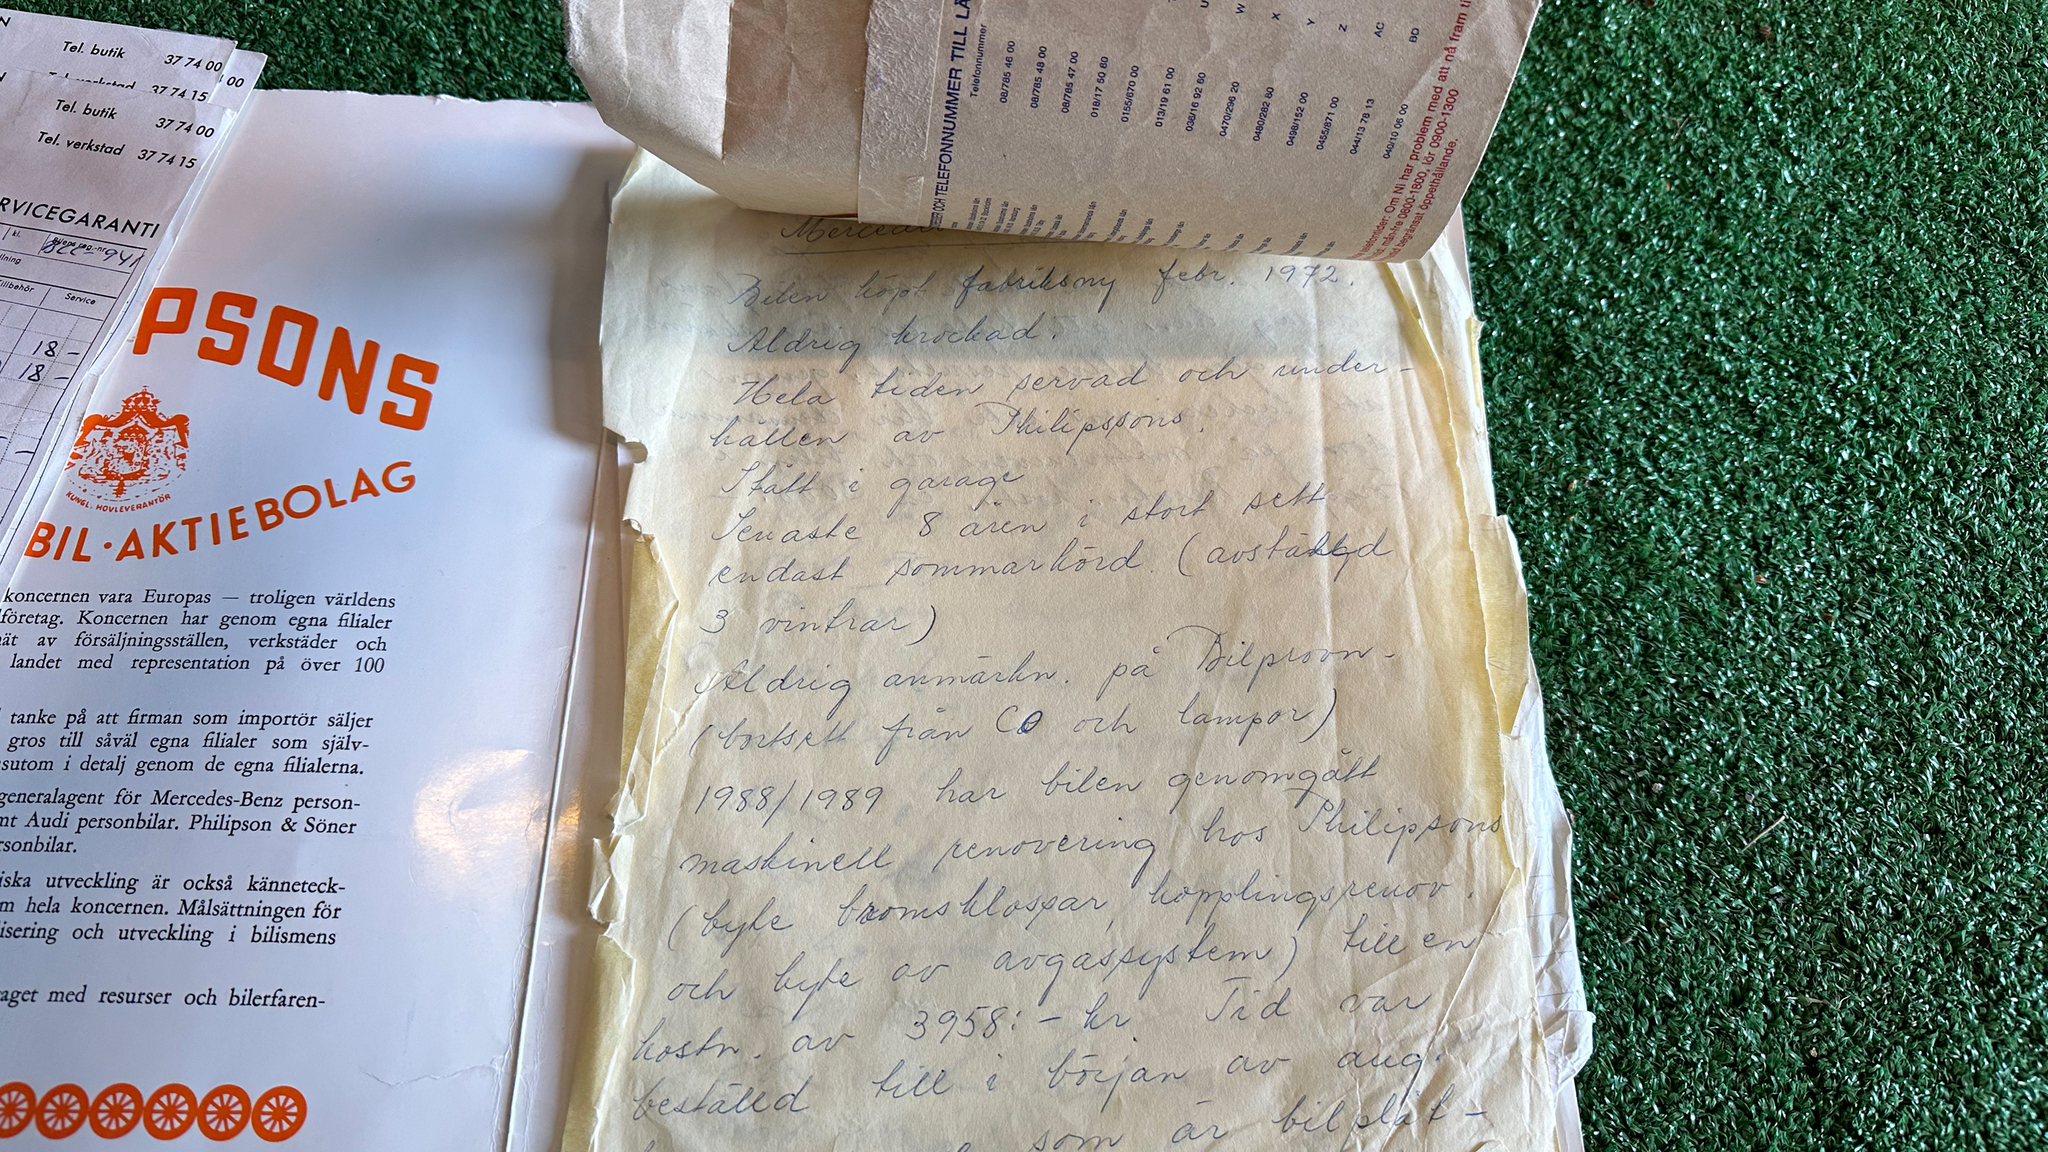 Tel. butik 37 74 00
Tel. verkstad 37 74 15
00
Tel. butik 37 74 00
Tel. verkstad 37 74 15
RVICEGARANTI
Service
18 -
18 -
PSONS
KUNGL. HOVLEVERANTÖR
BIL·AKTIEBOLAG
koncernen vara Europas — troligen världens
företag. Koncernen har genom egna filialer
nät av försäljningsställen, verkstäder och
landet med representation på över 100
tanke på att firman som importör säljer
gros till såväl egna filialer som själv-
ssutom i detalj genom de egna filialerna.
generalagent för Mercedes-Benz person-
mt Audi personbilar. Philipson & Söner
rsonbilar.
iska utveckling är också känneteck-
m hela koncernen. Målsättningen för
isering och utveckling i bilismens
aget med resurser och bilerfaren-
OCH TELEFONNUMMER TILL LÄ
Telefonnummer
08/785 46 00
08/785 48 00
08/785 47 00
018/17 50 60
0155/670 00
013/19 61 00
036/16 92 60
0470/296 20
0480/282 60
0498/152 00
0455/871 00
044/13 78 13
040/10 06 00
U
W
X
Y
Z
AC
BD
Om Ni har problem med att nå fram ti
mån-fre 0800-1800, lör 0900-1300
begränsat öppethållande.
Bilen köpt fabriksny febr. 1972.
Aldrig krockad.
Hela tiden servad och under-
hållen av Philipssons.
Stått i garage
Senaste 8 åren i stort sett
endast sommarkörd. (avställd
3 vintrar)
Aldrig anmärkn. på Bilprovn.
(bortsett från CO och lampor)
1988/1989 har bilen genomgått
maskinell renovering hos Philipsons
(byte bromsklossar, kopplingsrenov.
och byte av avgassystem) till en
kostn. av 3958:- kr Tid var
beställd till i början av aug.
som är bilplåt-